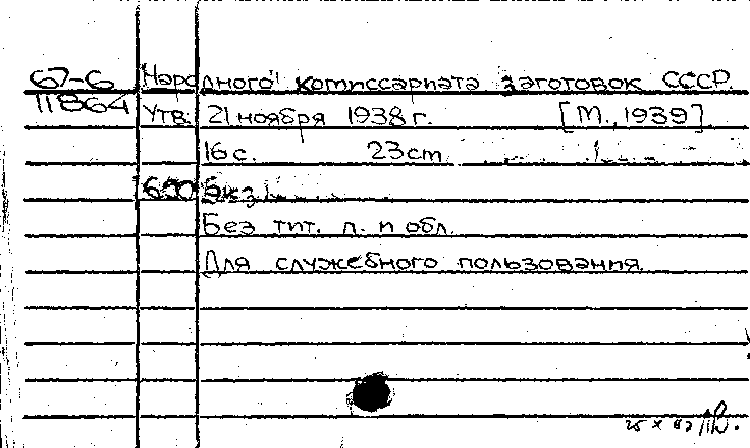 67-6 Народного" комиссариата заготовок СССР
11864 Утв. 21 ноября 1938 г. [М., 1939]
16 с. 23 cm.
650 экз.
Без тит. л. и обл.
Для служебного пользования.